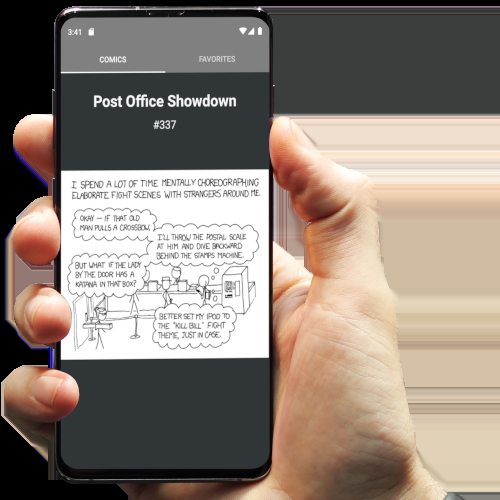 3:41
COMICS FAVORITES
Post Office Showdown
#337
I SPEND A LOT OF TIME MENTALLY CHOREOGRAPHING
ELABORATE FIGHT SCENES WITH STRANGERS AROUND ME.
OKAY — IF THAT OLD
MAN PULLS A CROSSBOW,
I'LL THROW THE POSTAL SCALE
AT HIM AND DIVE BACKWARD
BEHIND THE STAMPS MACHINE.
BUT WHAT IF THE LADY
BY THE DOOR HAS A
KATANA IN THAT BOX?
BETTER SET MY IPOD TO
THE "KILL BILL" FIGHT
THEME, JUST IN CASE.